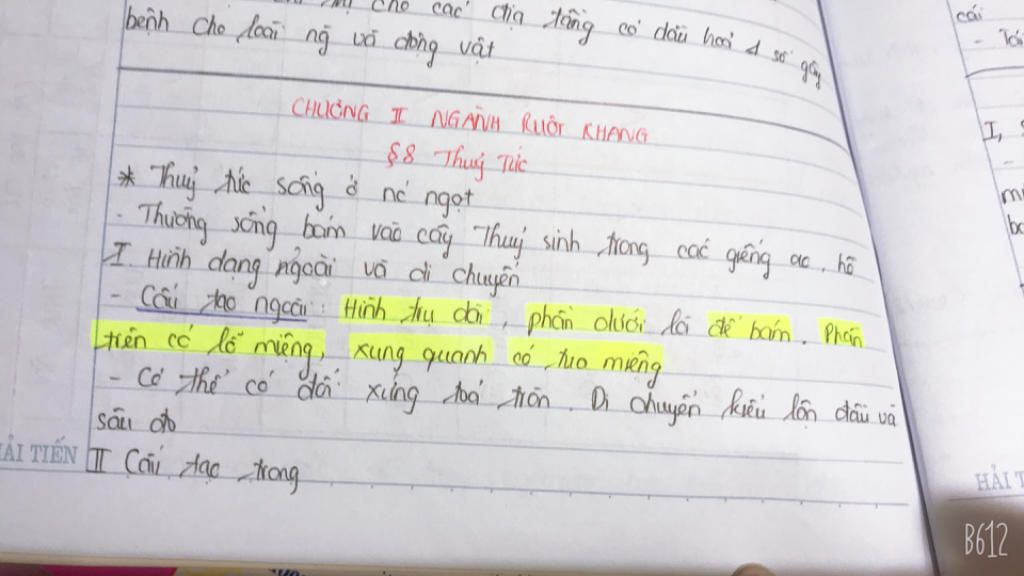 cho các địa tầng có dầu hoả 1 số gây
bệnh cho loài ng và động vật
CHƯƠNG II NGÀNH RUỘT KHANG
§8 Thuỷ Tức
* Thuỷ tức sống ở nc ngọt
- Thường sống bám vào cây Thuỷ sinh trong các giếng ao, hồ
I Hình dạng ngoài và di chuyển
- Cấu tạo ngoài: Hình trụ dài, phần dưới là đế bám. Phần
trên có lỗ miệng, xung quanh có tua miệng
- Cơ thể có đối xứng toả tròn. Di chuyển kiểu lộn đầu và
sâu đo
II Cấu tạo trong
HẢI TIẾN
cái
I,
HẢI T
B612